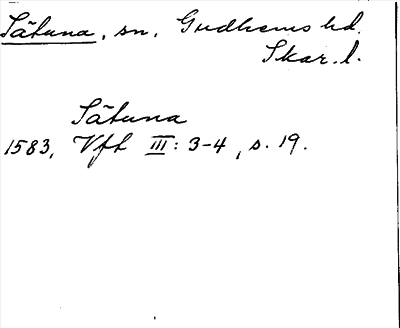 Sätuna, sn, Gudhems hd.
Skar. l.
Sätuna
1583, Vft III: 3-4, s. 19.